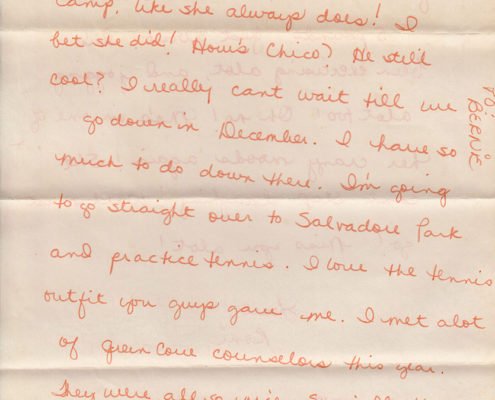 camp, like she always does! I
bet she did! How's Chico? He still
cool? I really cant wait till we
go down in December. I have so
much to do down there. I'm going
to go straight over to Salvadore Park
and practice tennis. I love the tennis
outfit you guys gave me. I met alot
of Green Cove counselors this year.
They were all so nice.
BERNIE